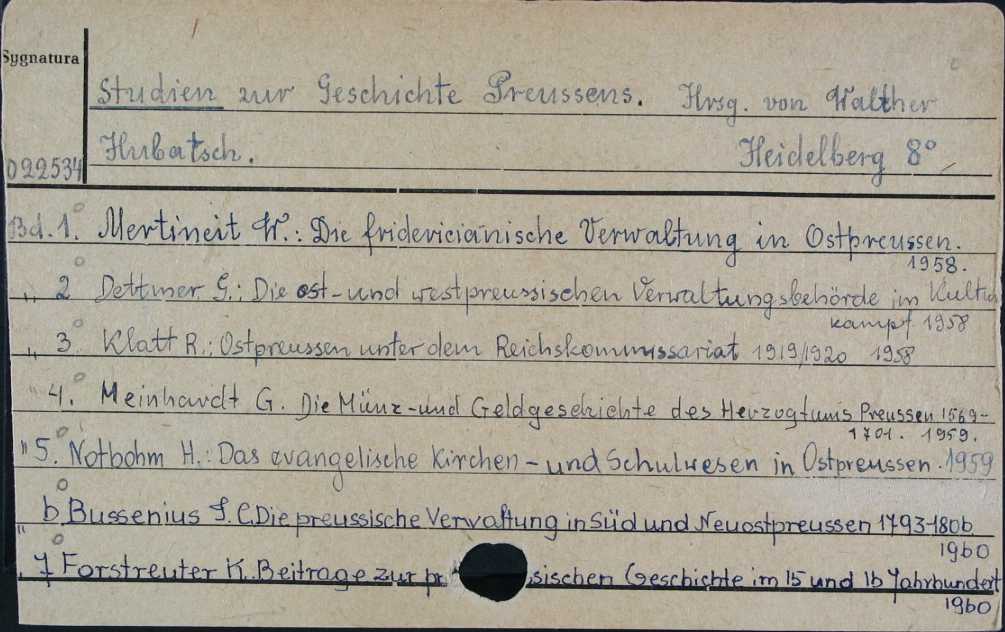 Sygnatura
Studien zur Geschichte Preussens. Hrsg. von Walther
Hubatsch. Heidelberg 8°
022534
Bd. 1. Mertineit W.: Die fridericianische Verwaltung in Ostpreussen.
1958.
" 2 Dettmer G.: Die ost- und westpreussischen Verwaltungsbehörde im Kultur
kampf 1958
" 3. Klatt R.: Ostpreussen unter dem Reichskommissariat 1919/1920 1958
" 4. Meinhardt G. Die Münz- und Geldgeschichte des Herzogtums Preussen 1569-
1701. 1959.
" 5. Notbohm H.: Das evangelische Kirchen- und Schulwesen in Ostpreussen. 1959
" 6 Bussenius I. C. Die preussische Verwaltung in Süd und Neuostpreussen 1793-1806
1960
" 7 Forstreuter K. Beitrage zur pr sischen Geschichte im 15 und 16 Jahrhundert
1960